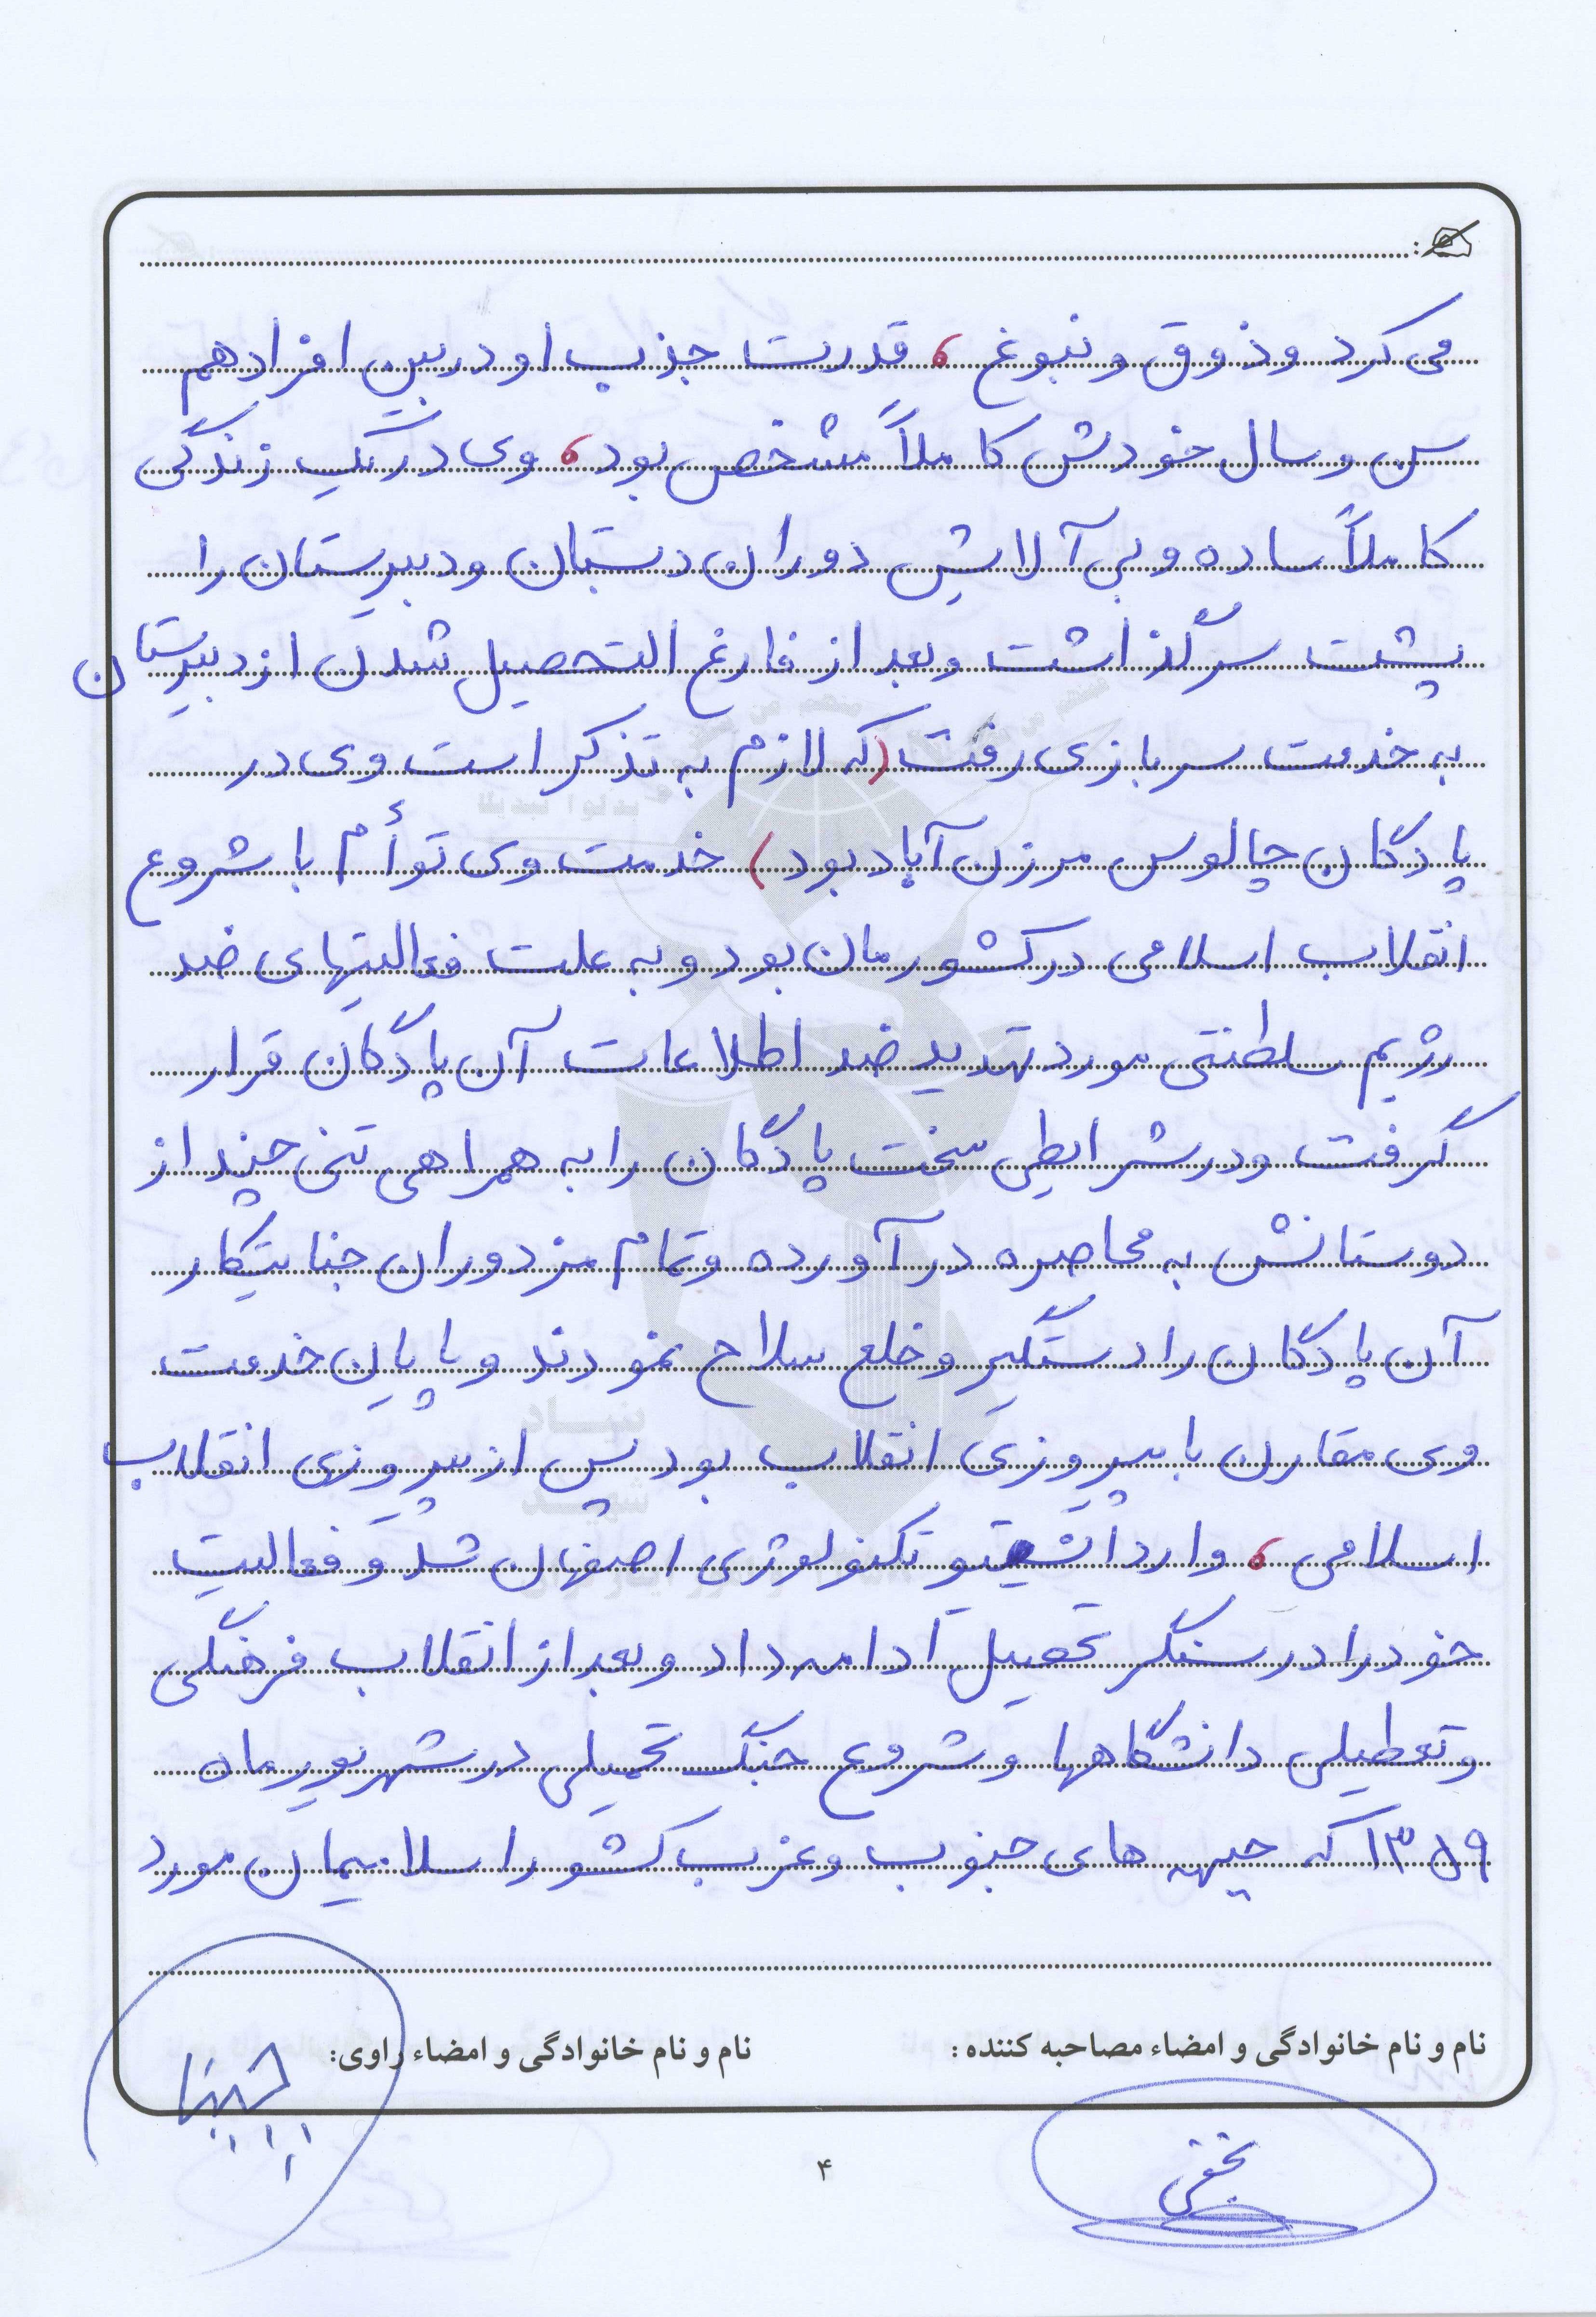 می کرد و ذوق و نبوغ ، قدرت جذب او در بین افراد هم
سن و سال خودش کاملاً مشخص بود ، وی در یک زندگی
کاملاً ساده و بی آلایش دوران دبستان و دبیرستان را
پشت سر گذاشت و بعد از فارغ التحصیل شدن از دبیرستان
به خدمت سربازی رفت (که لازم به تذکر است وی در
پادگان چالوس مرزن آباد بود) خدمت وی توأم با شروع
انقلاب اسلامی در کشورمان بود و به علت فعالیتهای ضد
رژیم سلطنتی مورد تهدید ضد اطلاعات آن پادگان قرار
گرفت و در شرایطی سخت پادگان را به همراهی تنی چند از
دوستانش به محاصره در آورده و تمام مزدوران جنایتکار
آن پادگان را دستگیر و خلع سلاح نمودند و با پایان خدمت
وی مقارن با پیروزی انقلاب بود پس از پیروزی انقلاب
اسلامی ، وارد انستیتو تکنولوژی اصفهان شد و فعالیت
خود را در سنگر تحصیل ادامه داد و بعد از انقلاب فرهنگی
و تعطیلی دانشگاهها و شروع جنگ تحمیلی در شهریور ماه
۱۳۵۹ که جبهه های جنوب و غرب کشور اسلامیمان مورد
نام و نام خانوادگی و امضاء مصاحبه کننده :
نام و نام خانوادگی و امضاء راوی:
۴